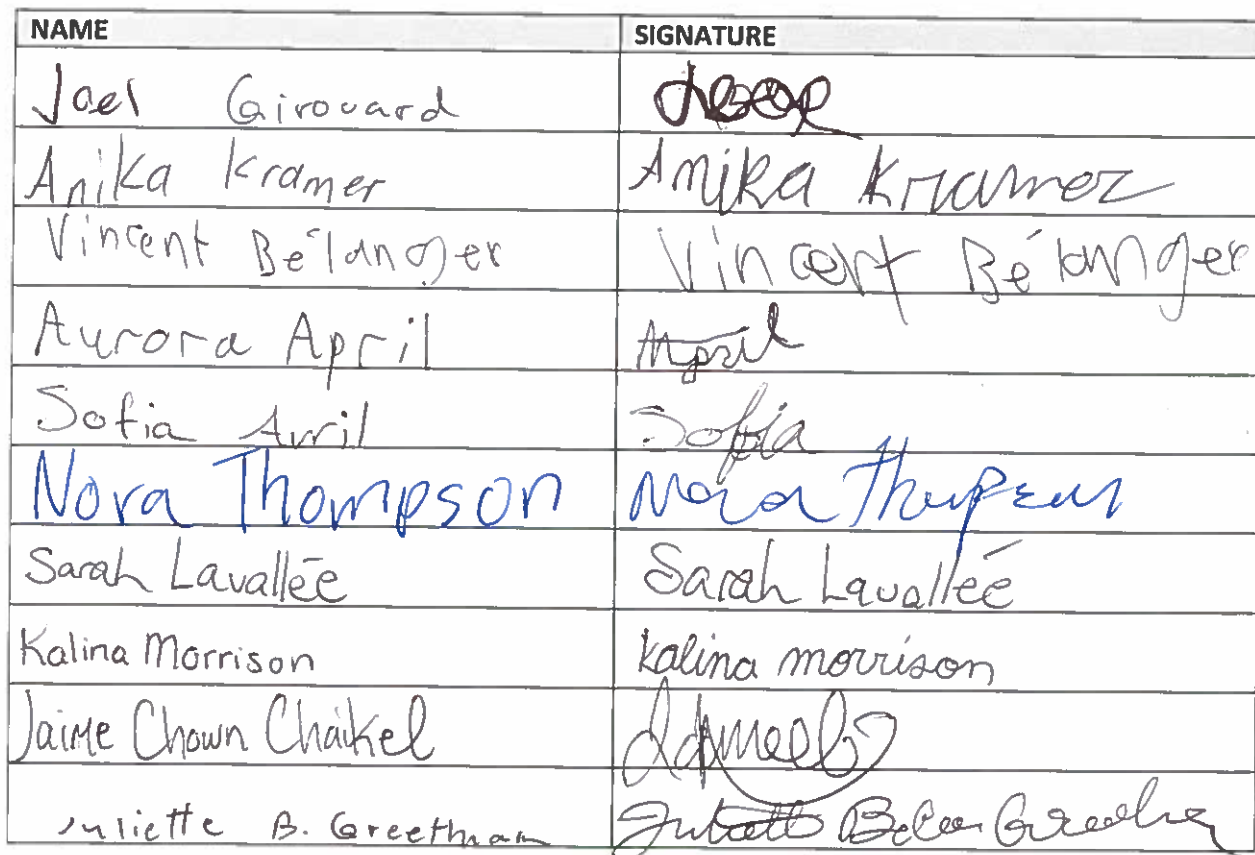 NAME SIGNATURE
Joel Girouard
Anika Kramer Anika Kramer
Vincent Bélanger Vincent Bélanger
Aurora April April
Sofia Avril Sofia
Nora Thompson Nora
Sarah Lavallée Sarah Lavallée
Kalina Morrison Kalina morrison
Jaime Chown Chaikel
Juliette B. Greetham